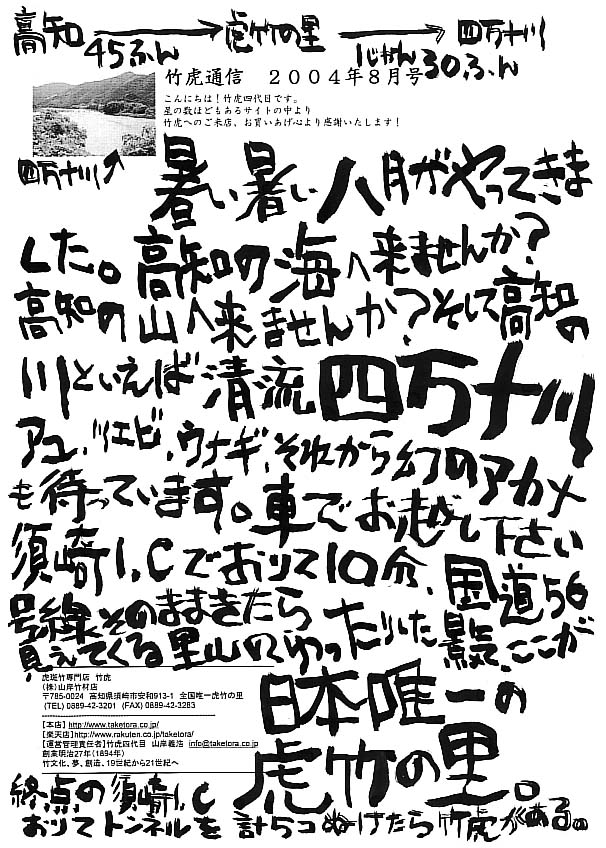 高知 → 虎竹の里 → 四万十川
45ふん 1じかん30ふん
竹虎通信 2004年8月号
こんにちは！竹虎四代目です。
星の数ほどもあるサイトの中より
竹虎へのご来店、お買いあげ心より感謝いたします！
四万十川↗
暑い暑い八月がやってきま
した。高知の海へ来ませんか?
高知の山へ来ませんか?そして高知の
川といえば清流四万十川
アユ、川エビ、ウナギ、それから幻のアカメ
も待っています。車でお越し下さい
須崎I.Cでおりて10分、国道56
号線そのまままきたら
見えてくる里山のゆったりした景気、ここが
日本唯一の
虎竹の里。
虎斑竹専門店 竹虎
(株)山岸竹材店
〒785-0024 高知県須崎市安和913-1 全国唯一虎竹の里
(TEL) 0889-42-3201 (FAX) 0889-42-3283
【本店】http://www.taketora.co.jp/
【楽天店】http://www.rakuten.co.jp/taketora/
【運営管理責任者】竹虎四代目 山岸義浩 info@taketora.co.jp
創業明治27年(1894年)
竹文化、夢、創造、19世紀から21世紀へ
終点の須崎I.C
おりてトンネルを 計5コぬけたら 竹虎がある。